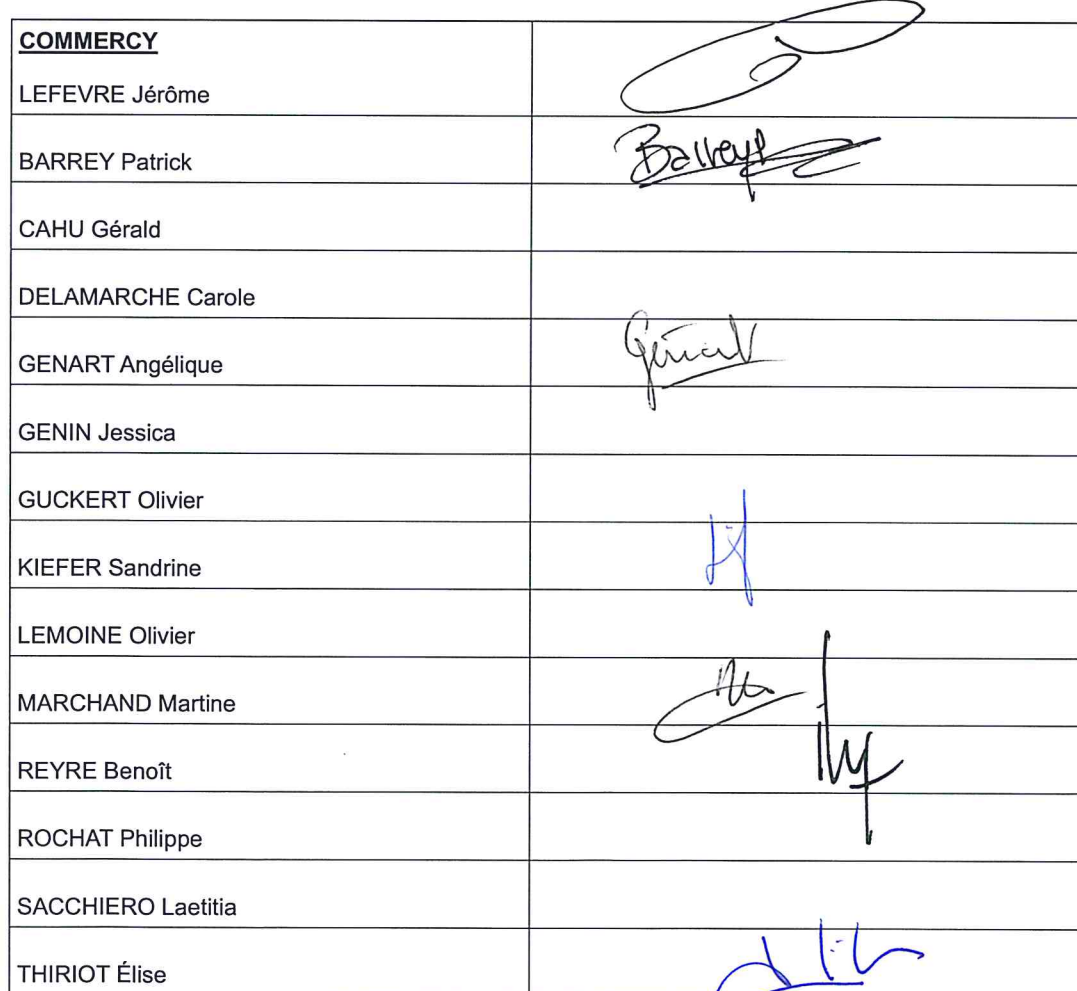 COMMERCY
LEFEVRE Jérôme
BARREY Patrick
Barrey
CAHU Gérald
DELAMARCHE Carole
GENART Angélique
Genart
GENIN Jessica
GUCKERT Olivier
KIEFER Sandrine
LEMOINE Olivier
MARCHAND Martine
REYRE Benoît
ROCHAT Philippe
SACCHIERO Laetitia
THIRIOT Élise